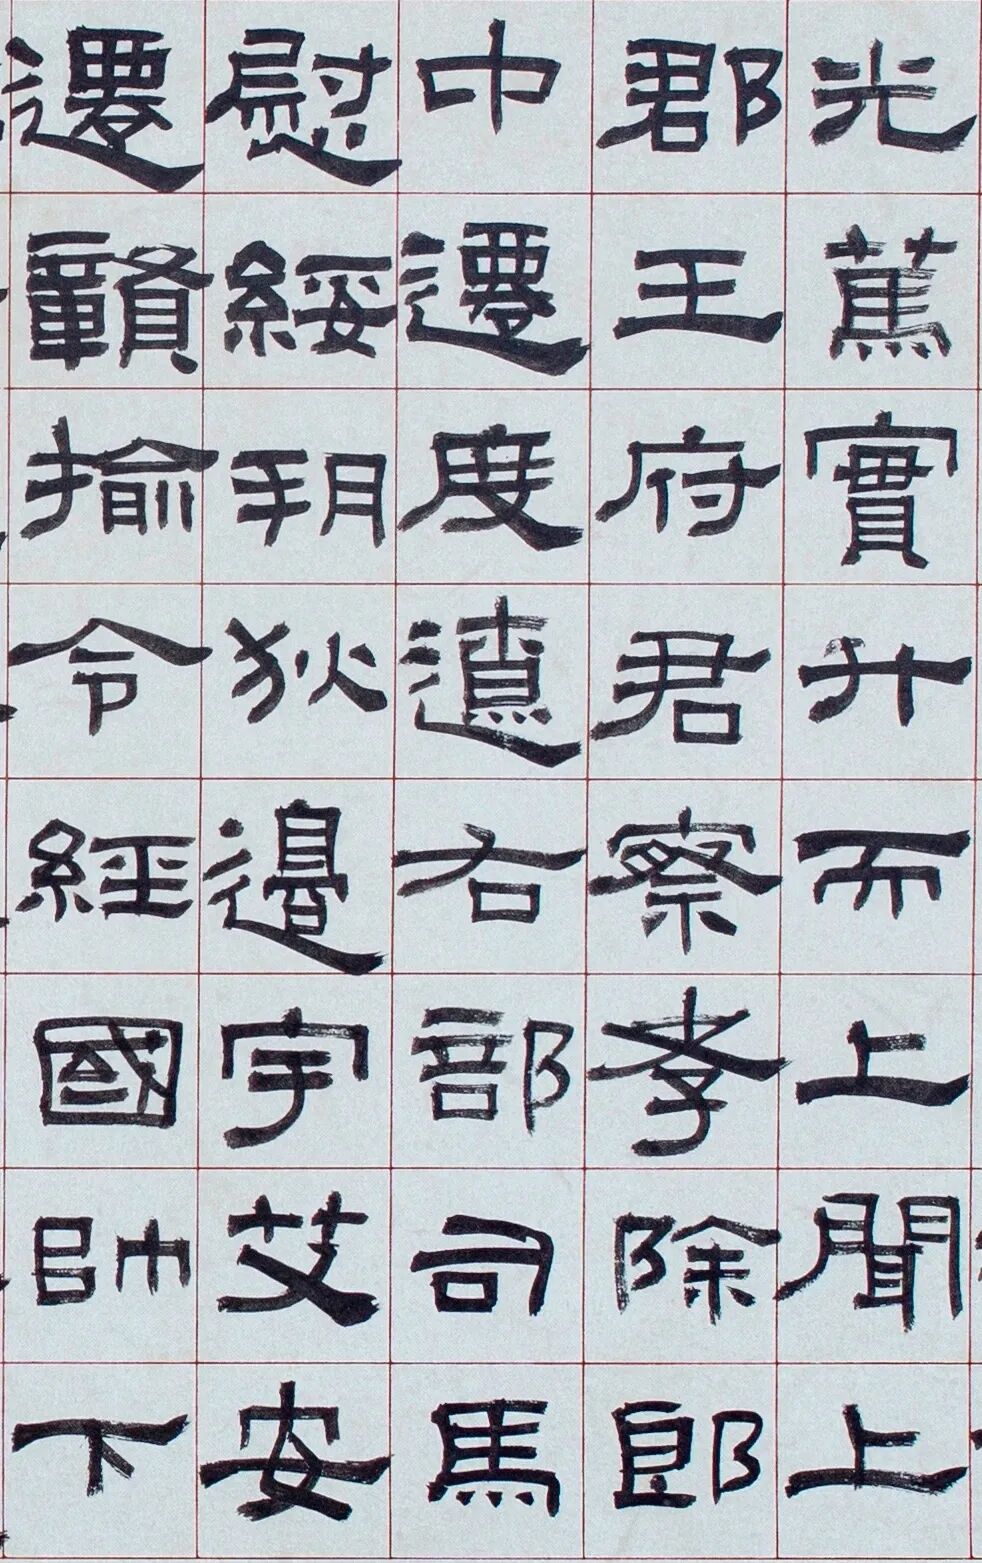 光薦實升而上聞上
郡王府君察孝除郎
中遷度遼右部司馬
慰綏朔狄邊宇艾安
遷贛揄令經國帥下